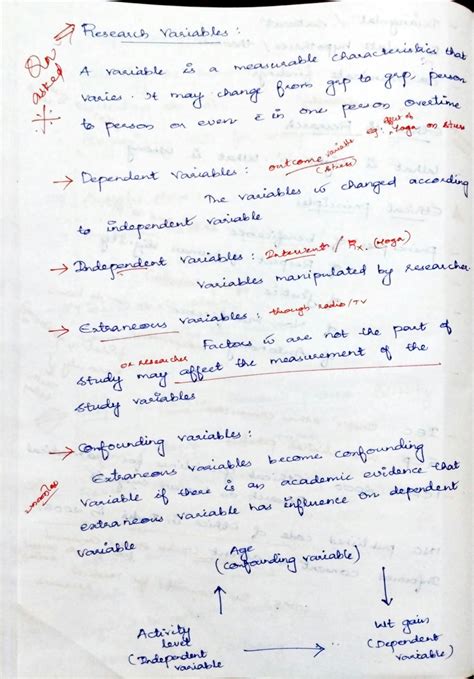 Qn asked
Research Variables :
A variable is a measurable characteristics that
varies. It may change from grp to grp, person
to person or even c̄ in one person overtime
eg: effect of Yoga on stress
→ Dependent Variables : outcome variable (stress)
The variables w is changed according
to independent variable
→ Independent variables : Intervent / Rx. (Yoga)
Variables manipulated by researcher
→ Extraneous variables : through radio/TV
Factors w are not the part of
study or researcher may affect the measurement of the
study variables
→ Confounding variables :
Extraneous variables become confounding
variable if there is an academic evidence that
extraneous variable has influence on dependent
variable
Age
(Confounding variable)
Activity
level
(Independent
variable
Wt gain
(Dependent
variable)